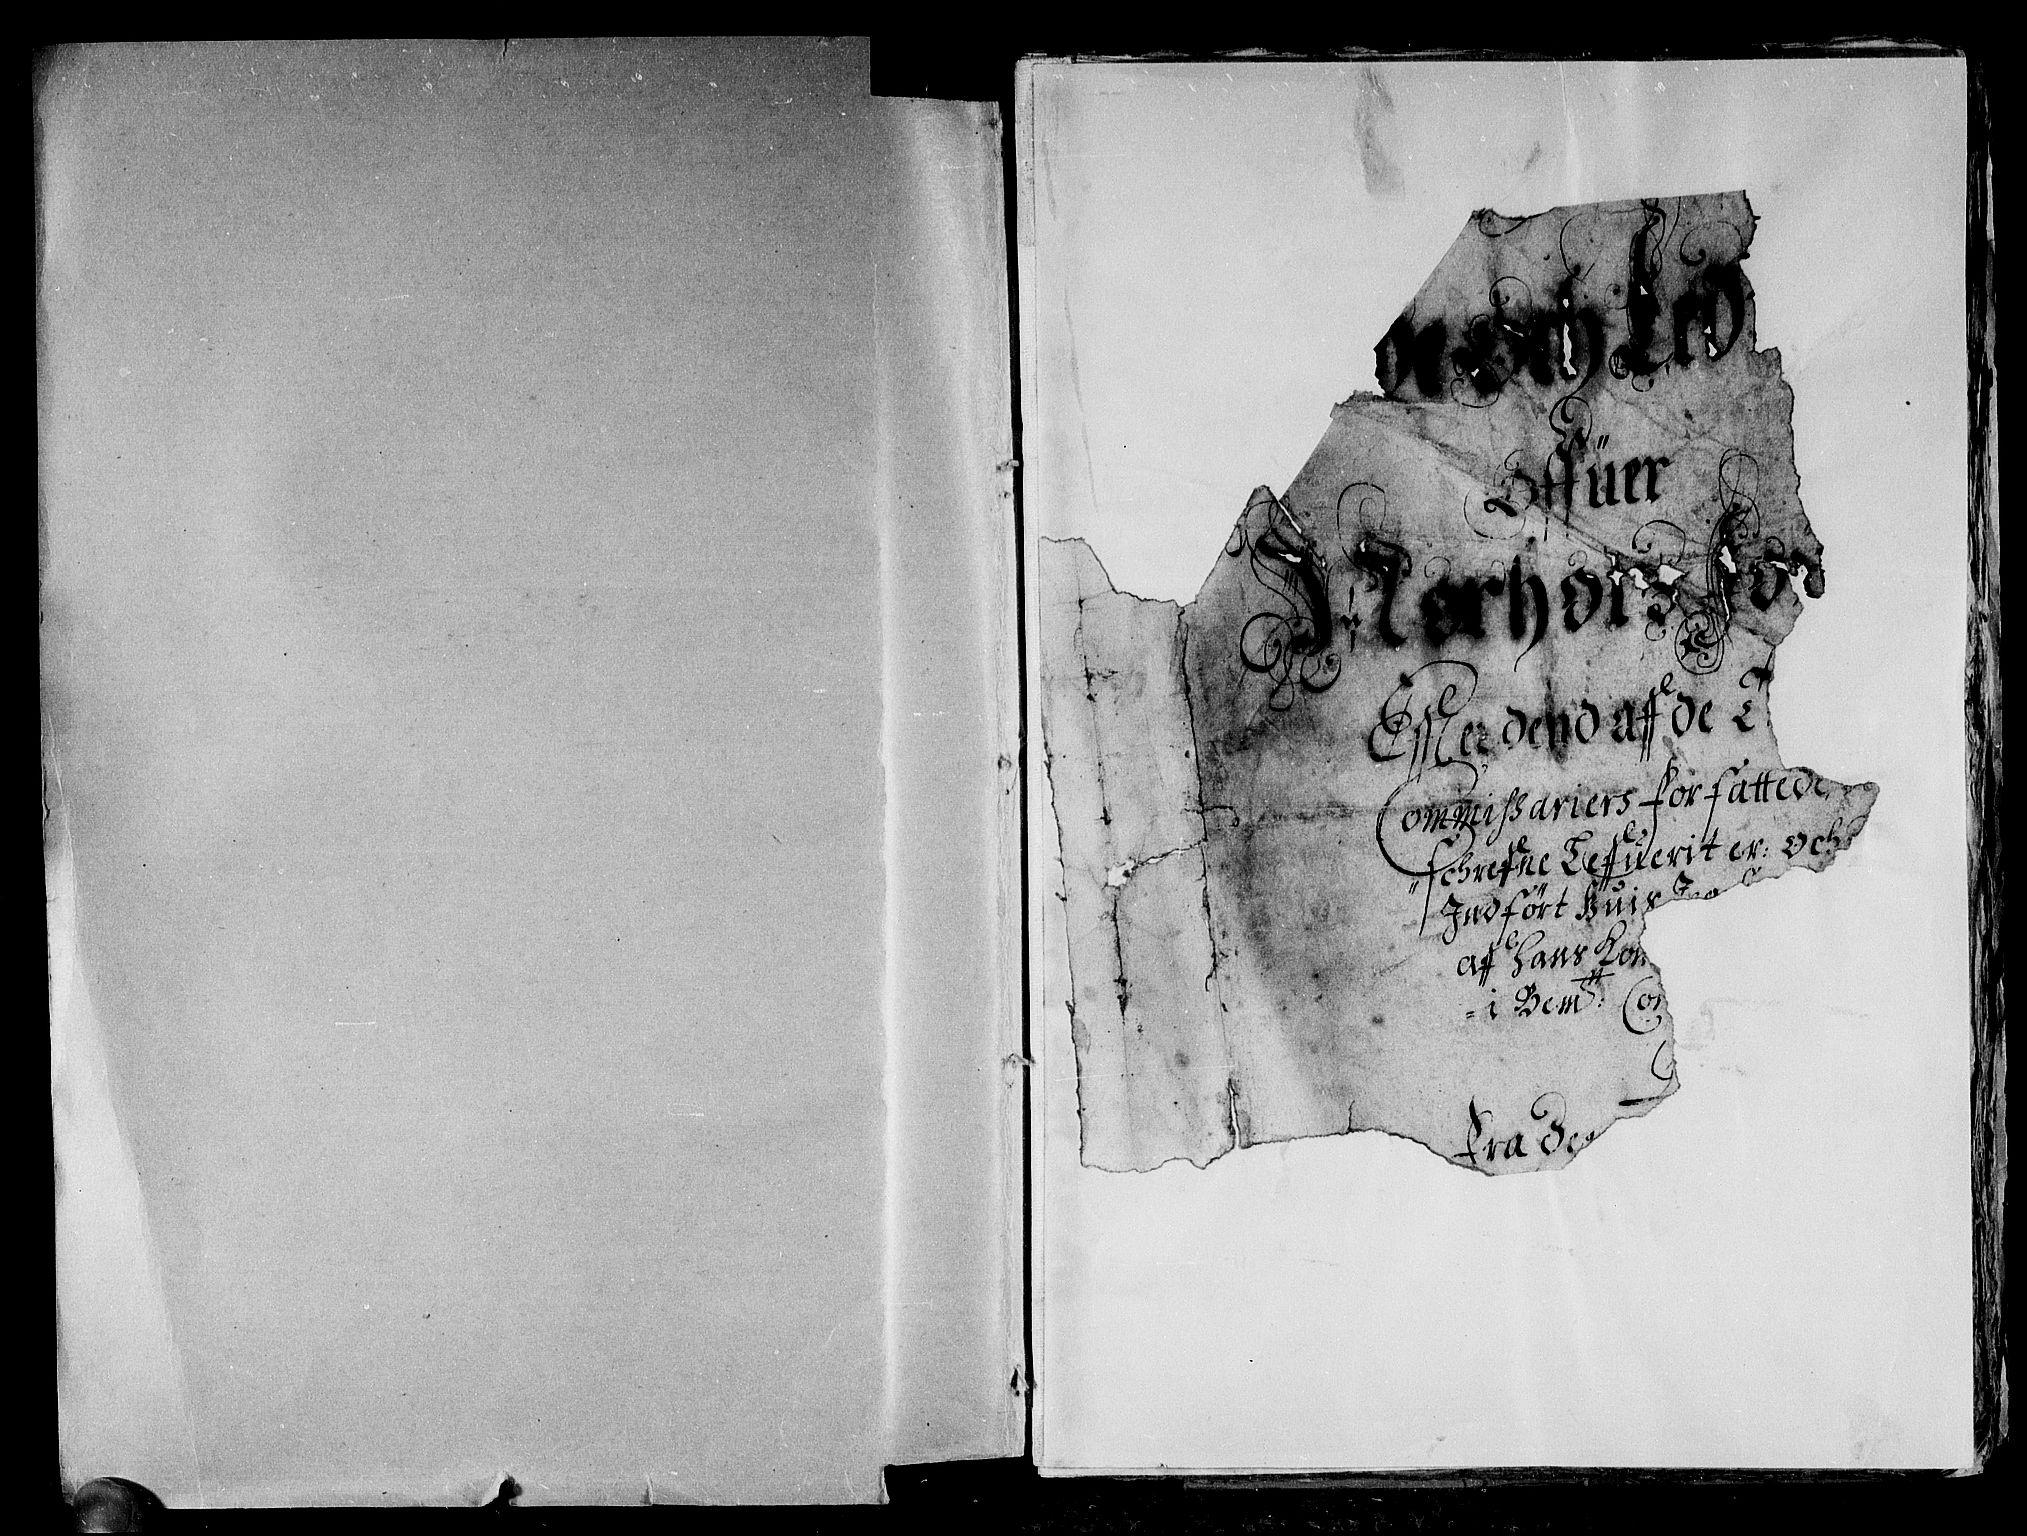 de Och Led
Offüer
J Norhords Fo
Effter dend aff de T
Commissariers forfattede
schrefne Leffuerit er: och
Indfört huis
aff hans Kon
i Bemt: Co
fra De